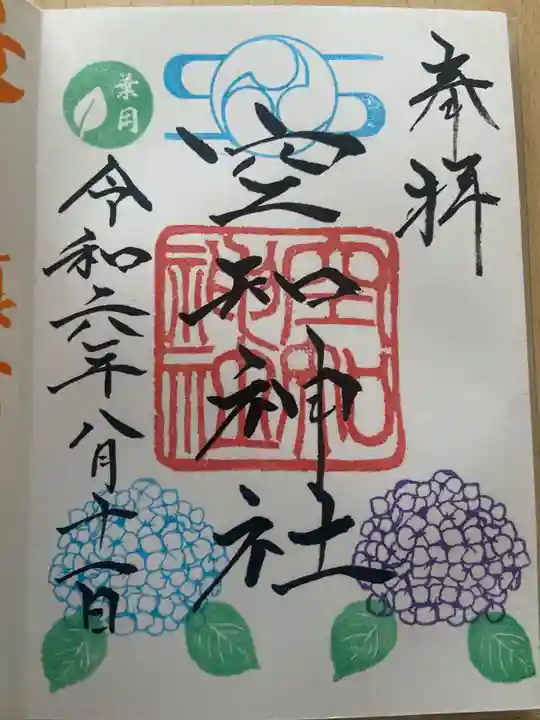 奉拝
空知神社
空知神社
葉月
令和六年八月十一日